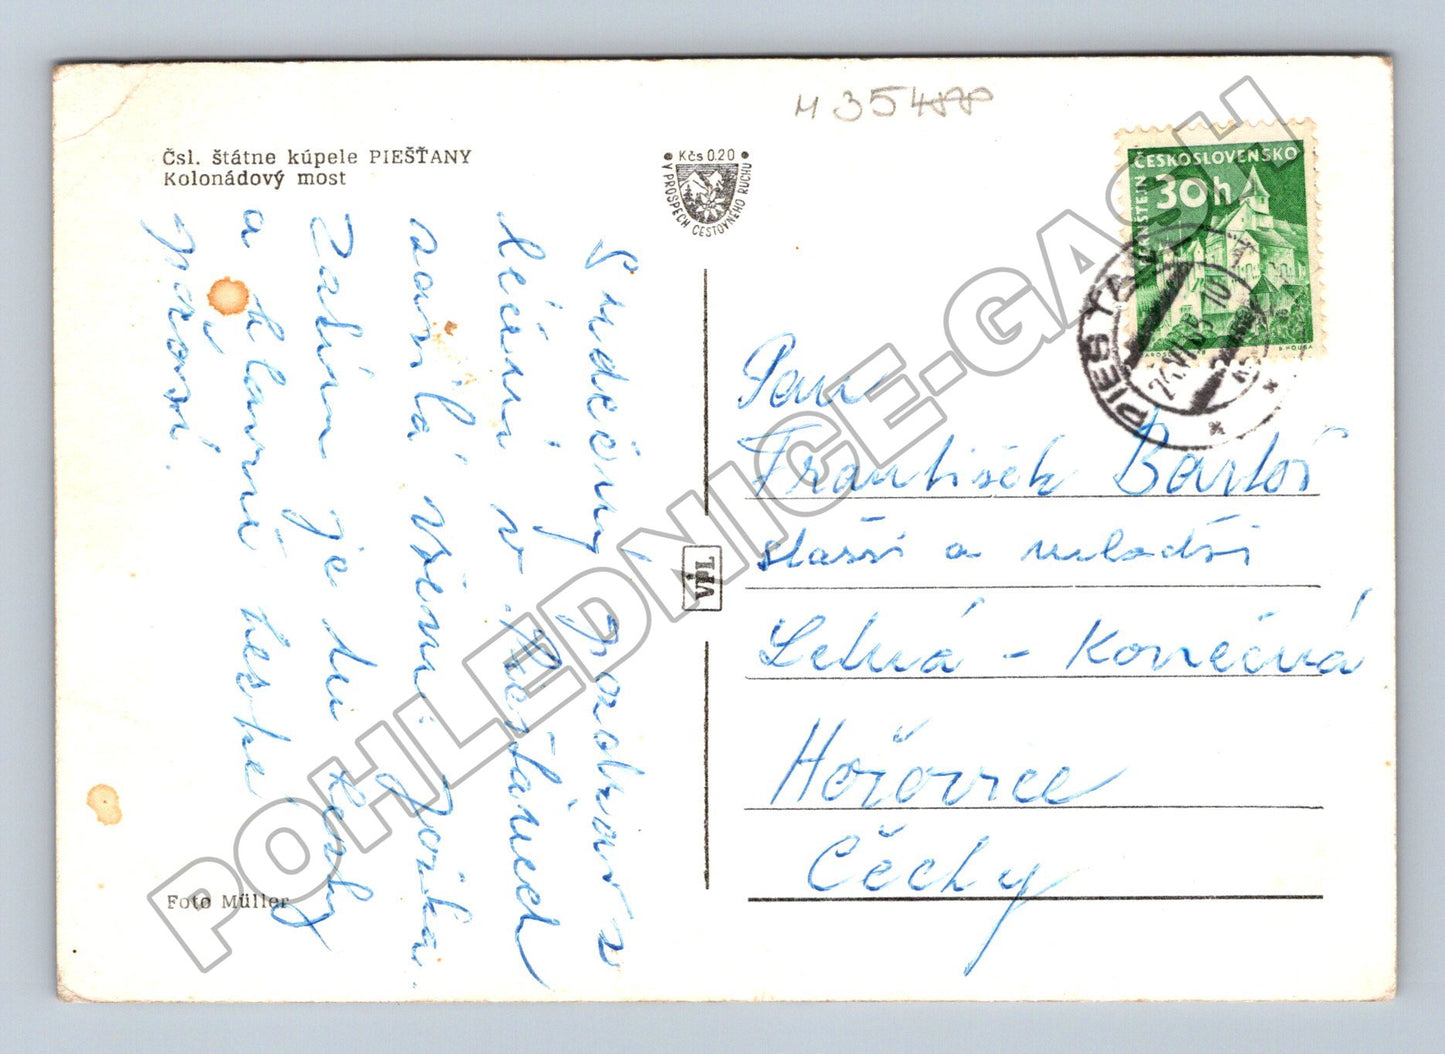 M 35488
Čsl. štátne kúpele PIEŠŤANY
Kolonádový most
Kčs 0.20
V PROSPECH CESTOVNÉHO RUCHU
ČESKOSLOVENSKO
30h
PERNŠTEJN
PIEŠŤANY
Srdečný pozdrav z
léčení v Piešťanech
zasílá všem Jožka.
Zatím je tu
a hlavně hesky
počasí.
VTL
Pan
František Bartoš
starší a mladší
Lelná - Konečná
Hořovice
Čechy
Foto Müller
POHLEDNICE-GASH